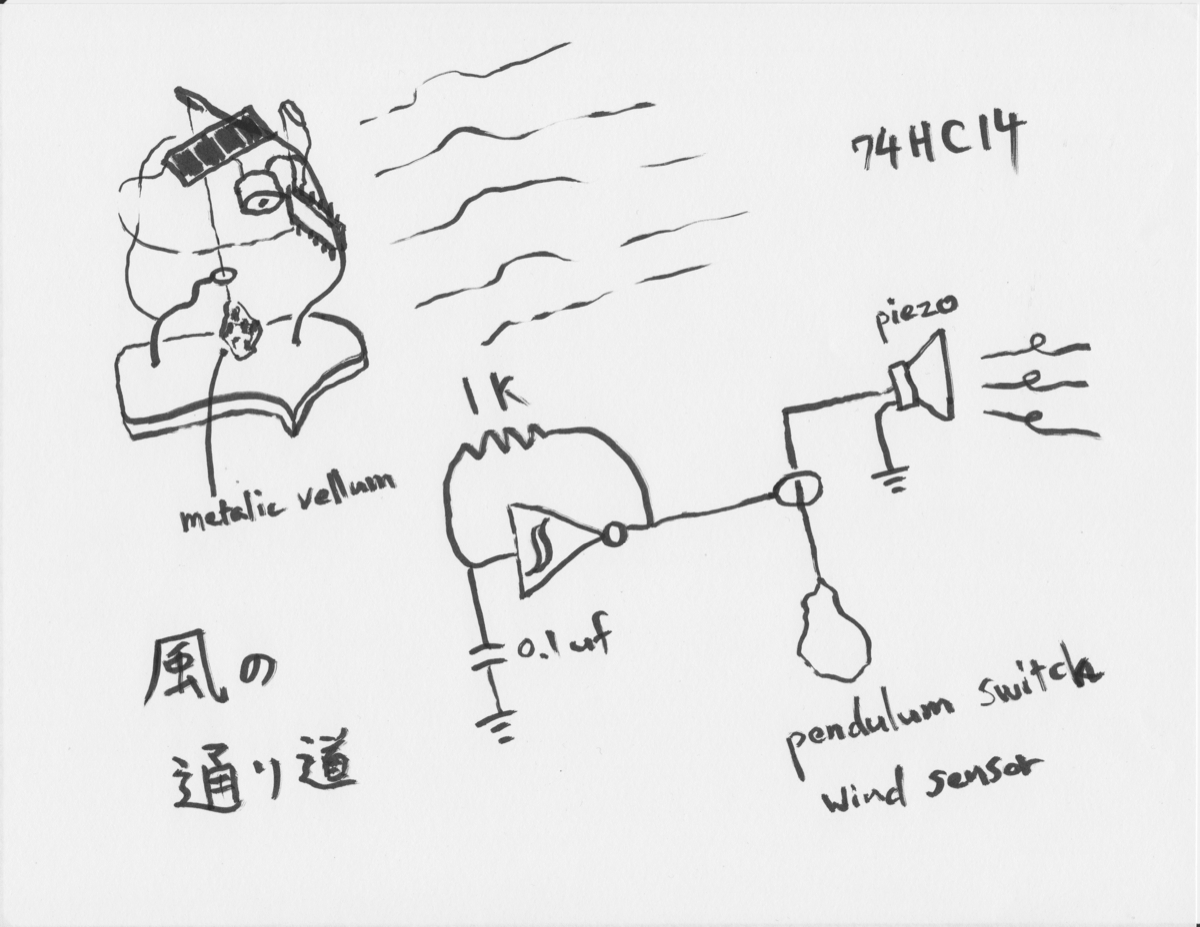 74HC14
piezo
1K
metalic vellum
0.1uf
風の
通り道
pendulum switch
wind sensor